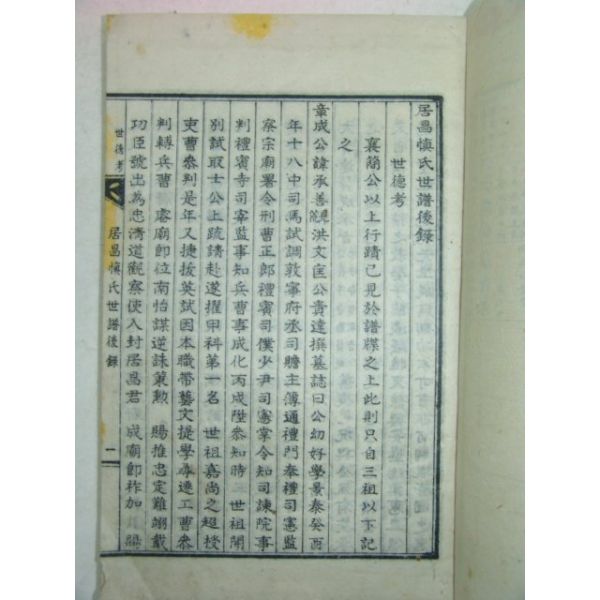 居昌愼氏世譜後錄
世德考
襄簡公以上行蹟已見於譜牒之上此則只自三祖以下記
之
章成公諱承善 洪文匡公貴達撰墓誌曰公幼好學景泰癸酉
年十八中司馬試調敦寧府丞司贍主簿通禮門奉禮司憲監
察宗廟署令刑曹正郎禮賓司僕少尹司憲掌令知司諫院事
判禮賓寺司宰監事知兵曹事成化丙戌陞參知時 世祖開
別試取士公上疏請赴遂擢甲科第一名 世祖嘉尚之超授
吏曹參判是年又捷拔英試因本職帶藝文提學尋遷工曹參
判轉兵曹 睿廟卽位南怡謀逆誅策勲 賜推忠定難翊戴
功臣號出爲忠淸道觀察使入封居昌君 成廟卽祚加
世德考
居昌愼氏世譜後錄
一